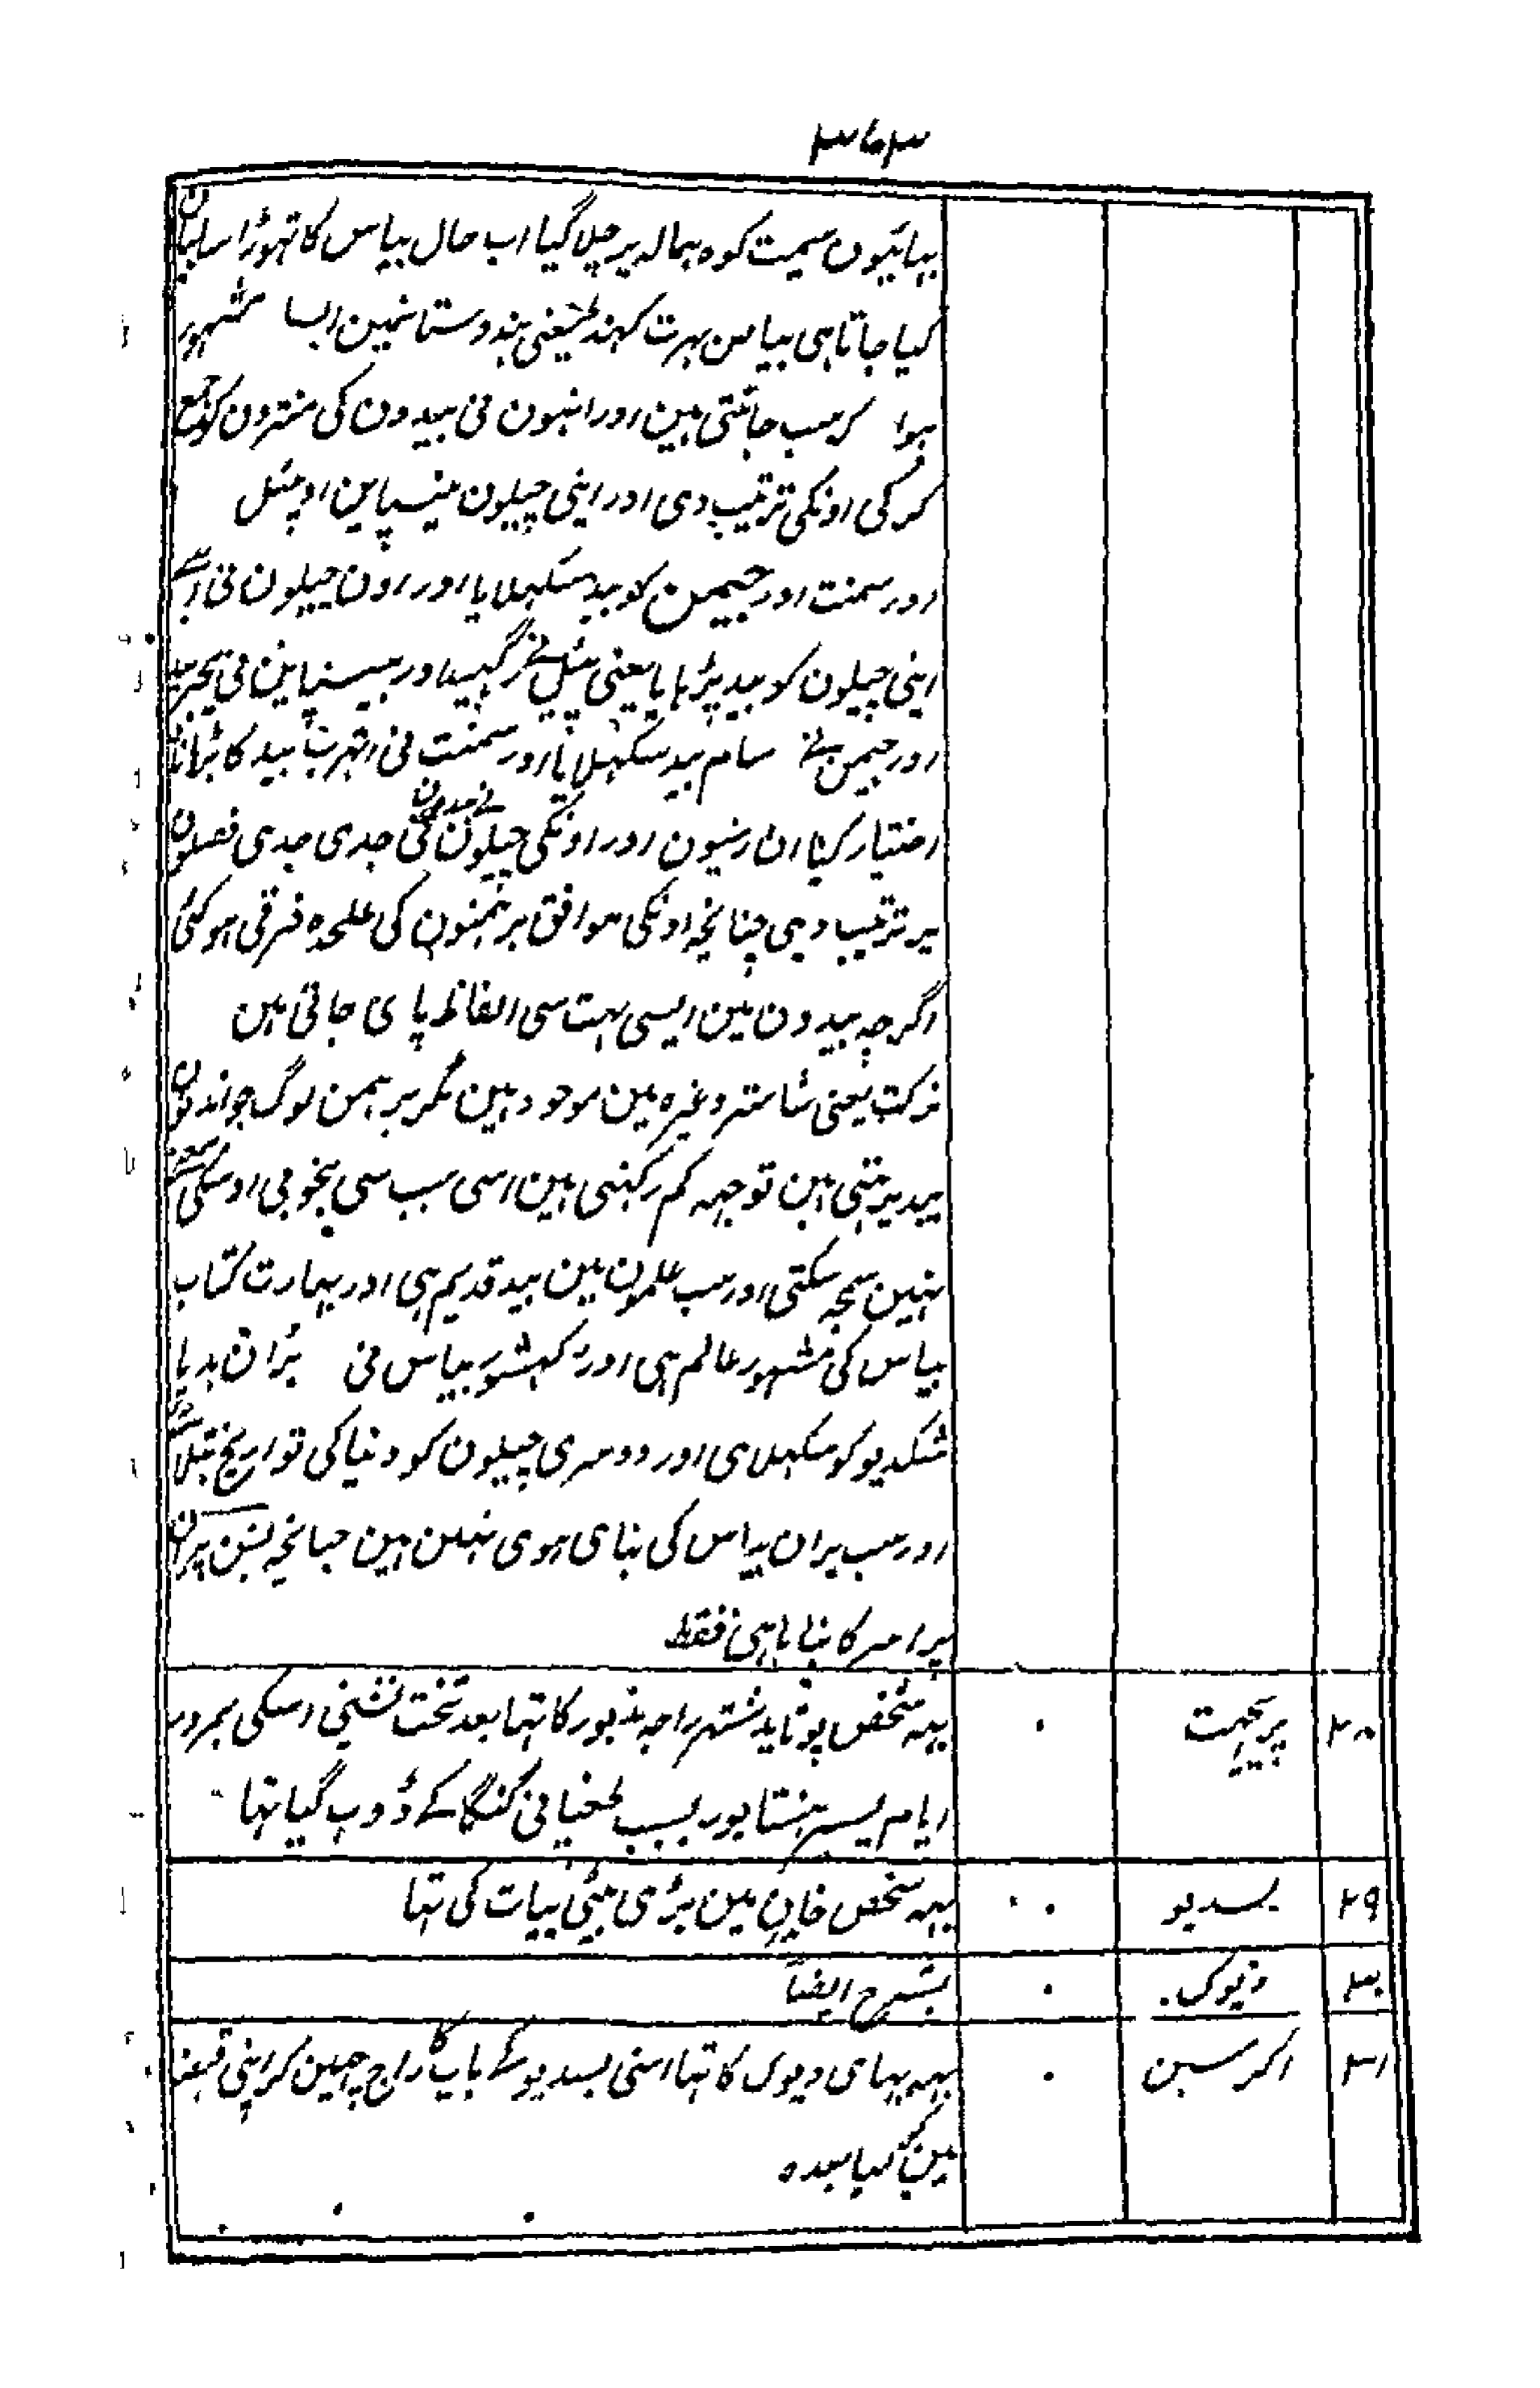 ۳۶۳
بہائیون سمیت کوہ ہمالہ پر چلا گیا اب حال بیاس کا تہوڑا سا بیان
کیا جاتا ہی بیاس بہرت کہنڈ یعنی ہندوستانمین ایسا مشہور
ہوا کہ سب جانتی ہین اور انہون نی بیدون کی منترون کو جمع
کر کی اونکی ترتیب دی اور اپنی چیلون
اور سمنت اور جیمن کو بید سکہلایا اور اون چیلون نی
اپنی چیلون کو بید پڑہایا یعنی پیل نے رگ بید اور بیسنپاین نی یجر بید
اور جیمن نے سام بید سکہلایا اور سمنت نی اتہربن بید کا پڑہانا
اختیار کیا ان رشیون اور اونکی چیلون نی بیدون کی جدی جدی فصلون
پر ترتیب دی چنانچہ اونکی موافق برہمنون کی علحدہ فرقی ہوگئی
اگرچہ بیدون مین ایسی بہت سی الفاظ پای جاتی ہین
نرکت یعنی شاستر وغیرہ مین موجود ہین مگر برہمن لوگ جو اندنون
بید پڑہتی ہین توجہہ کم رکہتی ہین اسی سبب سی بخوبی اوسکی معنے
نہین سمجہ سکتی اور سب علمون مین بید قدیم ہی اور بہارت کتاب
بیاس کی مشہور عالم ہی اور بیاس نی پران بدیا
شکدیو کو سکہلای اور دوسری چیلون کو دنیا کی تواریخ بتلائی
اور سب پران بیاس کی بنای ہوی نہین ہین چنانچہ بشن پران
پراسر کا بنایا ہی فقط
۲۸ پریچہت ۰ یہہ شخص پوتا یدشتہر راجہ مذبور کا تہا بعد تخت نشینی اسکی بمرور
ایام یسیر ہستناپور بسبب طغیانی گنگا کے ڈوب گیا تہا
۲۹ بسدیو ۰ یہہ شخص خاندان مین بڑی بیٹی بیات کی تہا
۳۰ دیوک ۰ بشرح ایضاً
۳۱ اگرسین ۰ یہہ بہای دیوک کا تہا اسنی بسدیو کے باپ کا راج چہین کر اپنی قبضہ
مین کیا بعدہ